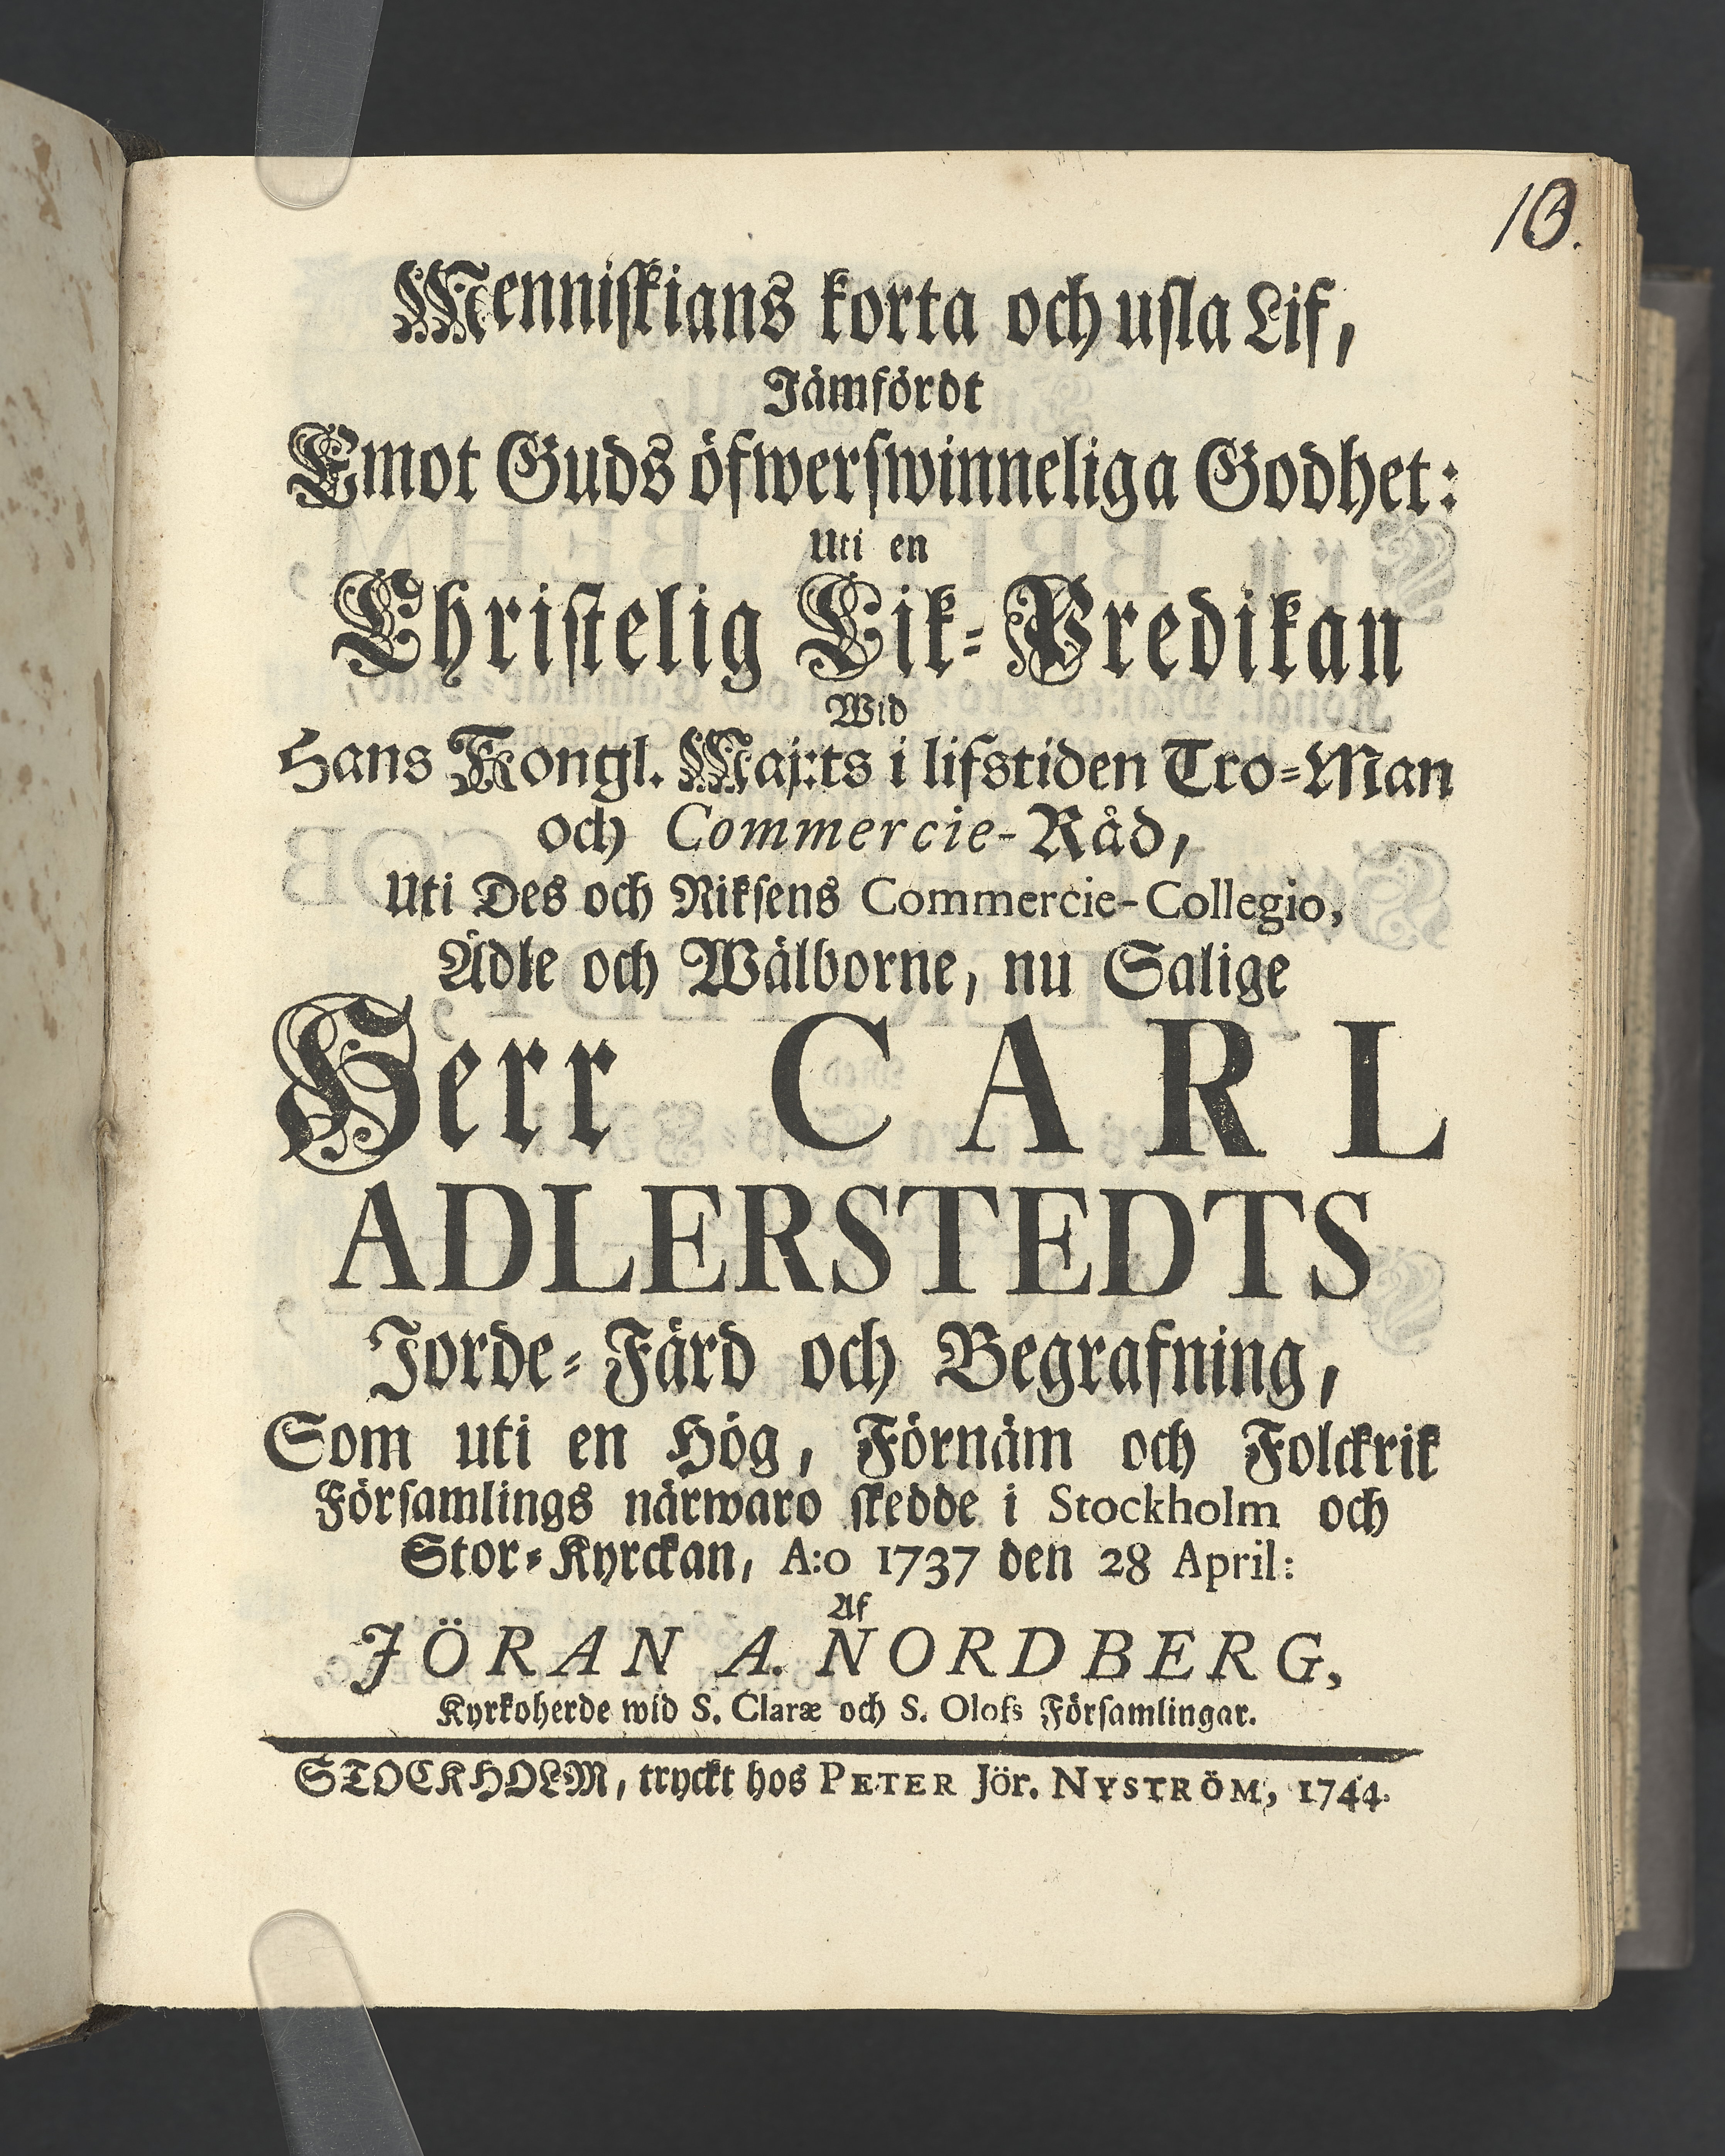 10.
Menniſkians korta och uſla Lif,
Jämfördt
Emot Guds öfwerſwinneliga Godhet:
Uti en
Chriſtelig Lik-Predikan
Wid
Hans Kongl. Maj:ts i lifstiden Tro-Man
och Commercie-Råd,
Uti Des och Rikſens Commercie-Collegio,
Ädle och Wälborne, nu Salige
Herr CARL
ADLERSTEDTS
Jorde-Färd och Begrafning,
Som uti en Hög, Förnäm och Folckrik
Förſamlings närwaro ſkedde i Stockholm och
Stor-Kyrckan, A:o 1737 den 28 April:
Af
JÖRAN A. NORDBERG,
Kyrkoherde wid S. Claræ och S. Olofs Förſamlingar.
STOCKHOLM, tryckt hos PETER Jör. NYSTRÖM, 1744.